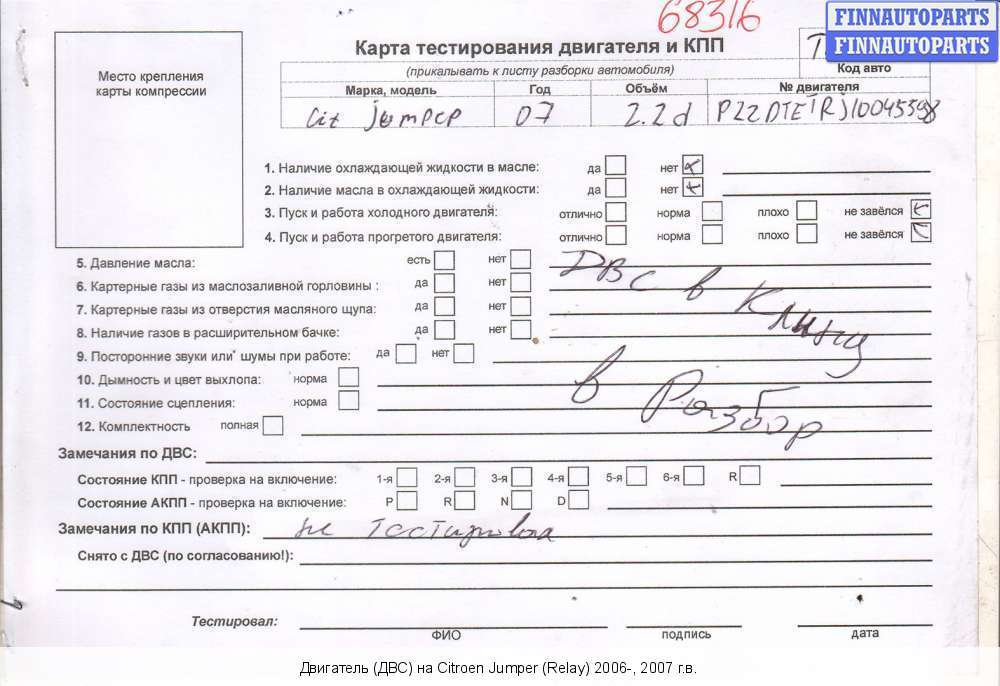 68316
FINNAUTOPARTS
FINNAUTOPARTS
Карта тестирования двигателя и КПП
(прикалывать к листу разборки автомобиля)
Код авто
Место крепления
карты компрессии
Марка, модель Год Объём № двигателя
Cit Jumper 07 2.2d
1. Наличие охлаждающей жидкости в масле: да нет
2. Наличие масла в охлаждающей жидкости: да нет
3. Пуск и работа холодного двигателя: отлично норма плохо не завёлся
4. Пуск и работа прогретого двигателя: отлично норма плохо не завёлся
5. Давление масла: есть нет
6. Картерные газы из маслозаливной горловины : да нет
7. Картерные газы из отверстия масляного щупа: да нет
8. Наличие газов в расширительном бачке: да нет
ДВС в Клину
9. Посторонние звуки или шумы при работе: да нет
10. Дымность и цвет выхлопа: норма
11. Состояние сцепления: норма
в Разбор
12. Комплектность полная
Замечания по ДВС:
Состояние КПП - проверка на включение: 1-я 2-я 3-я 4-я 5-я 6-я R
Состояние АКПП - проверка на включение: P R N D
Замечания по КПП (АКПП): не тестирова
Снято с ДВС (по согласованию!):
Тестировал:
ФИО подпись дата
Двигатель (ДВС) на Citroen Jumper (Relay) 2006-, 2007 г.в.